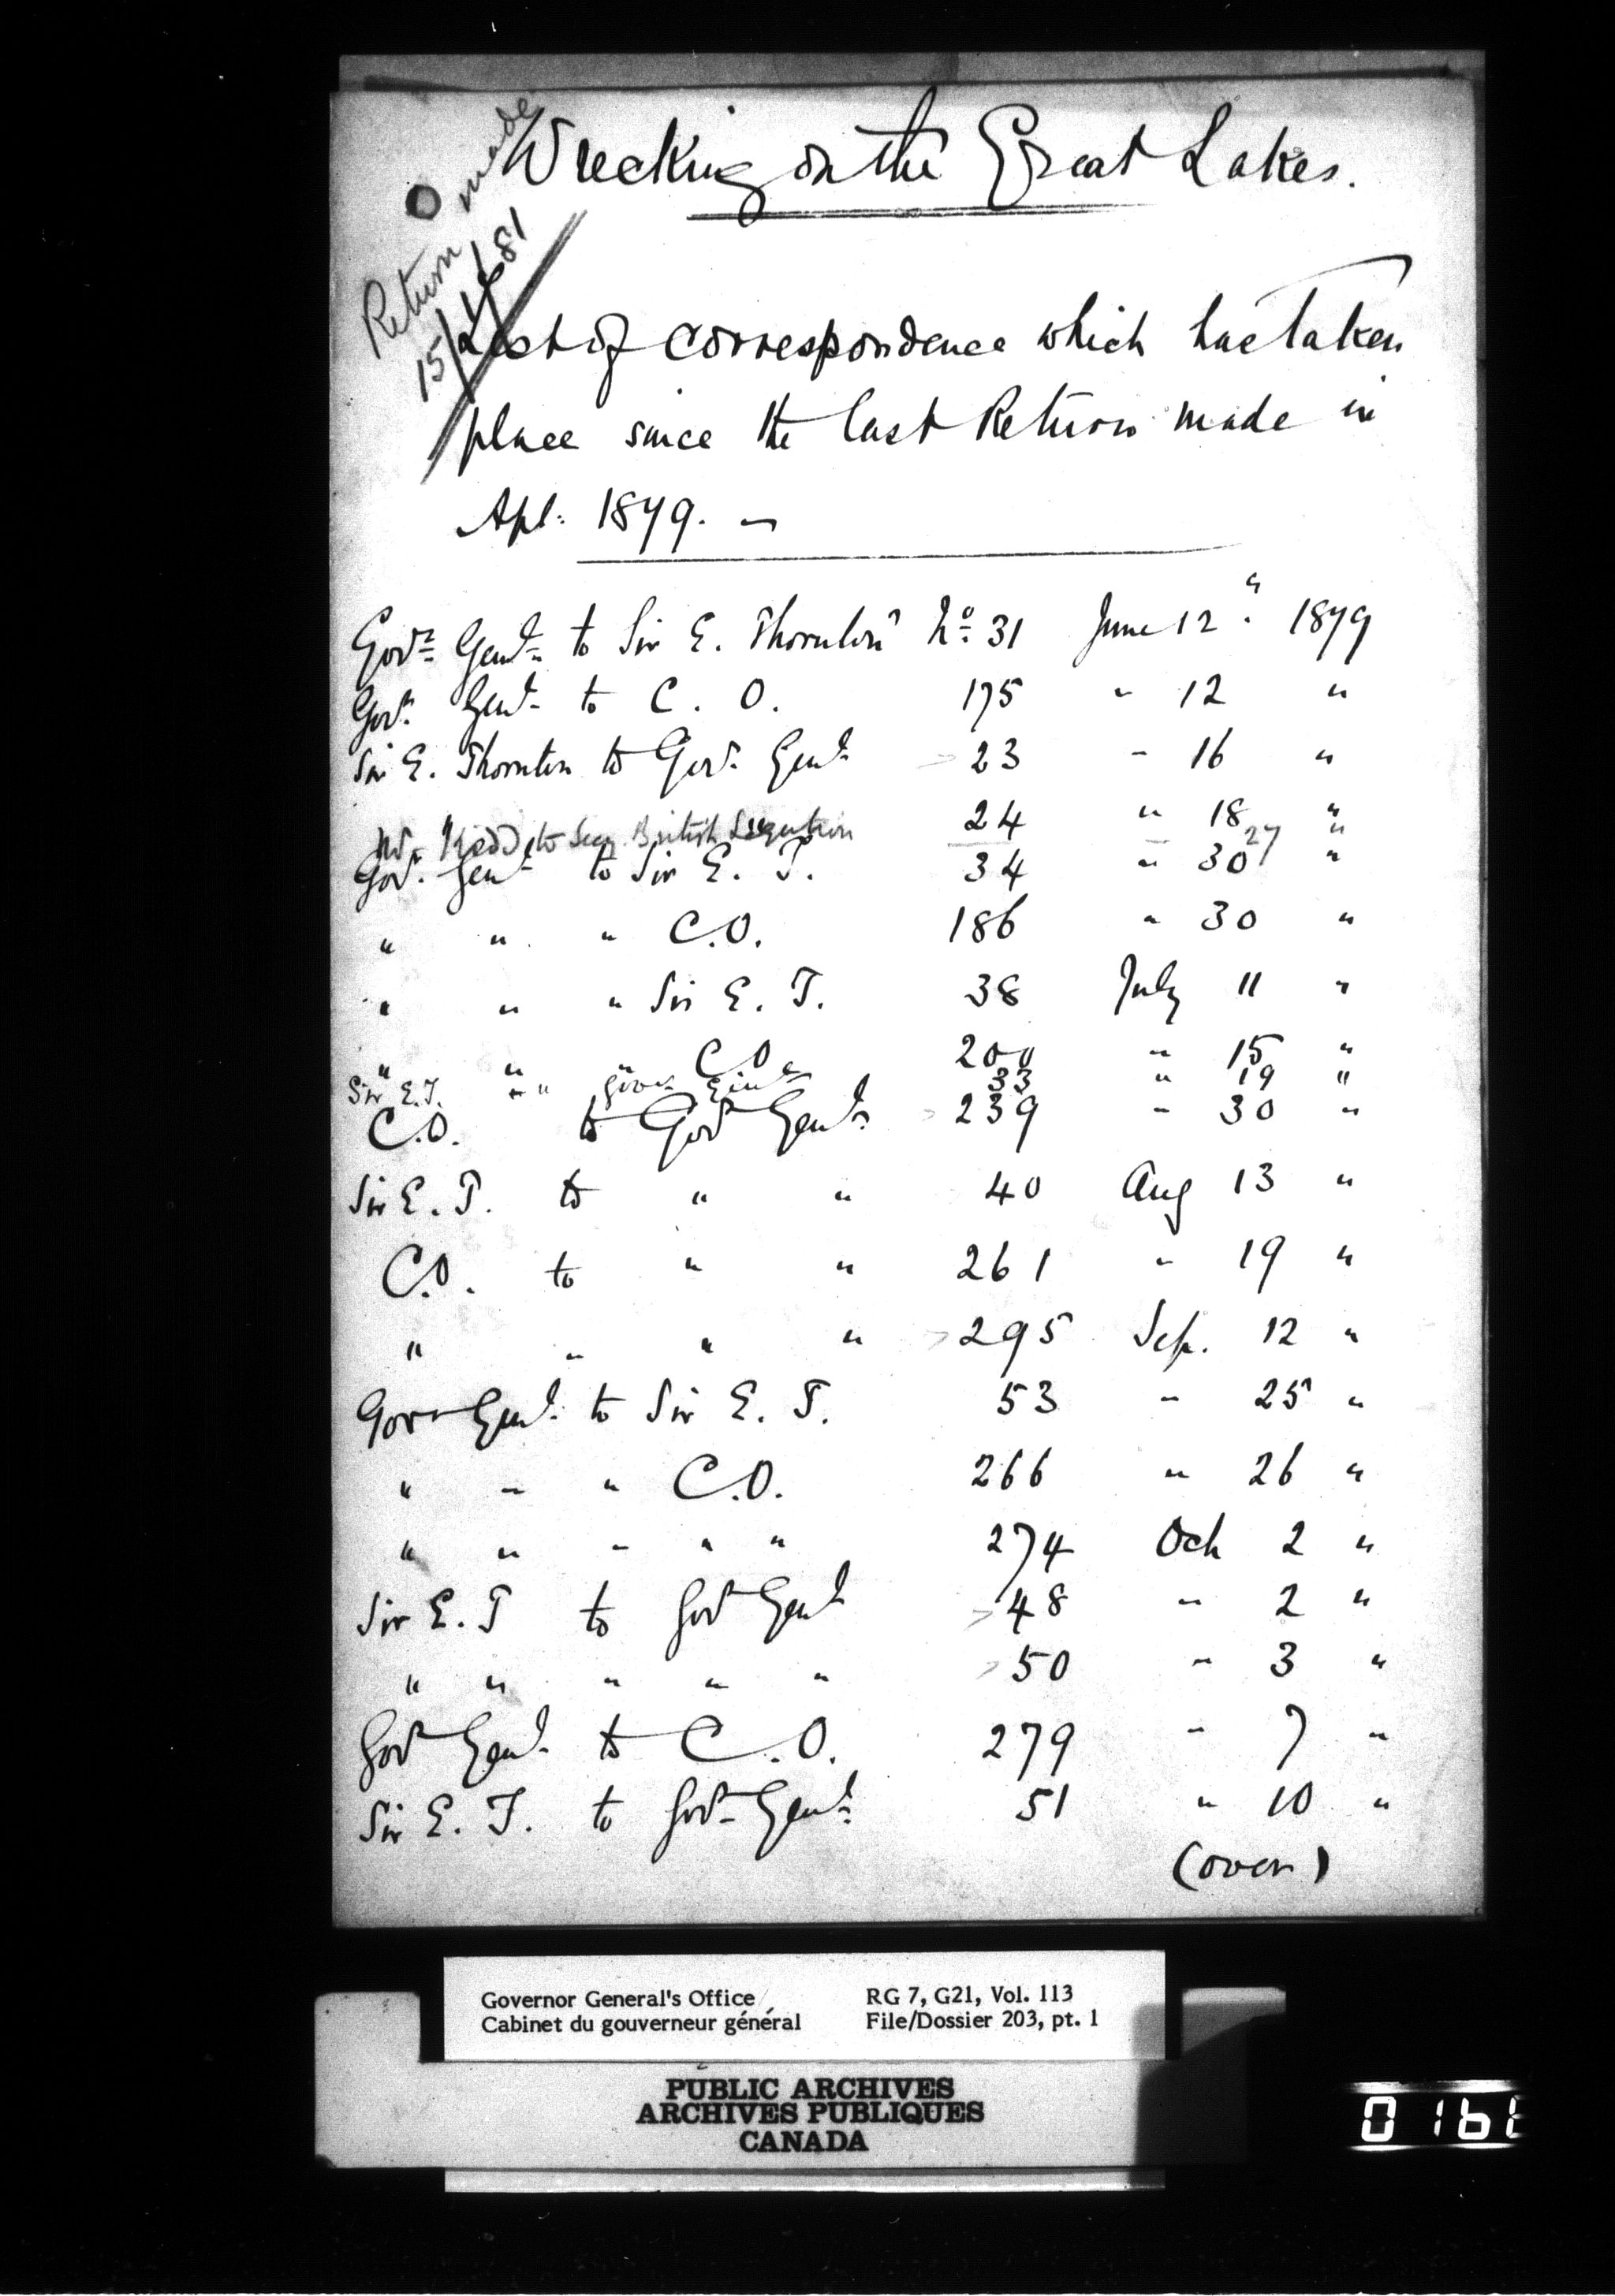 Wrecking on the Great Lakes.
Return made
15/2/81
List of correspondence which has taken
place since the last Return made in
Apl: 1879. –
Govr Genl to Sir E. Thornton No 31 June 12 " 1879
Govr Genl to C. O. 175 " 12 "
Sir E. Thornton to Govr Genl 23 " 16 "
24 " 18 "
to Secy British Legation " 27 "
Govr Genl to Sir E. T. 34 " 30 "
" " " C.O. 186 " 30 "
" " " Sir E. T. 38 July 11 "
" " C.O. 200 " 15 "
Sir E.T. " " Govr Genl 33 " 19 "
C.O. to Govr Genl 239 " 30 "
Sir E. T. to " " 40 Aug 13 "
C.O. to " " 261 " 19 "
" " " " 295 Sep. 12 "
Govr Genl to Sir E. T. 53 " 25 "
" " " C.O. 266 " 26 "
" " " " " 274 Oct 2 "
Sir E. T to Govr Genl 48 " 2 "
" " " " " 50 " 3 "
Govr Genl to C.O. 279 " 7 "
Sir E. T. to Govr Genl 51 " 10 "
(over)
Governor General's Office RG 7, G21, Vol. 113
Cabinet du gouverneur général File/Dossier 203, pt. 1
PUBLIC ARCHIVES
ARCHIVES PUBLIQUES
CANADA